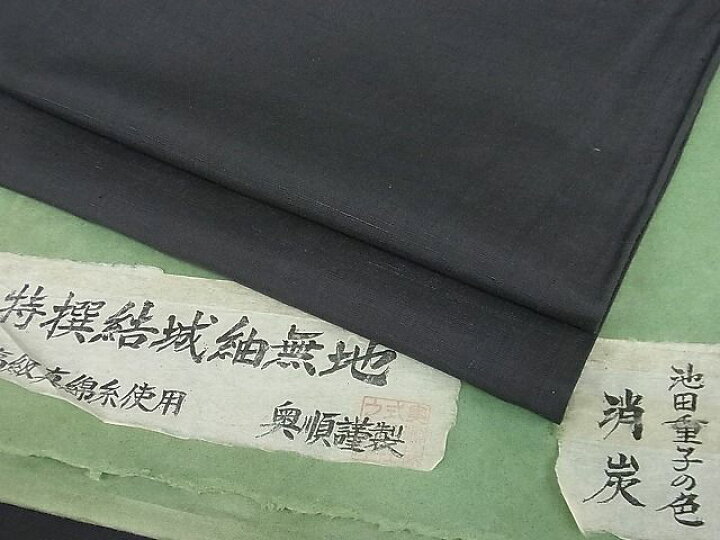 特撰結城紬無地
高級真綿糸使用
奥順謹製
池田重子の色
消炭